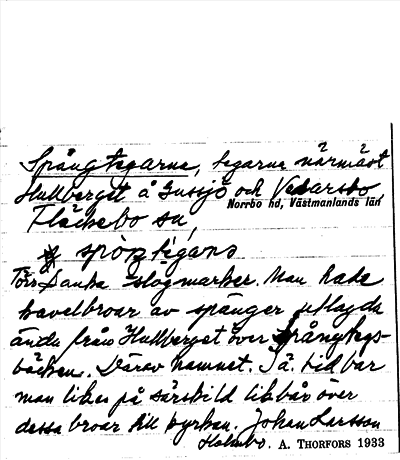 Spångtegarne, tegarne närmäst
Hullberget å Gussjö och Vedarsbo
Norrbo hd, Västmanlands län
Fläckebo sn,
spòŋtígans
Torr slogmarker. Man hade
kavelbroar av spänger utlagda
ända från Hullberget över Spångtegs-
bäcken. Därav namnet. I ä. tid bar
man liken på särskild likbår över
dessa broar till kyrkan. Johan Larsson
Holmbo. A. THORFORS 1933